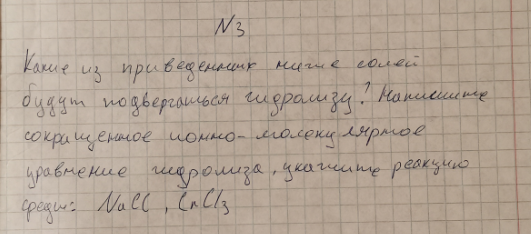 N3
Какие из приведенных ниже солей
будут подвергаться гидролизу? Напишите
сокращенное ионно-молекулярное
уравнение гидролиза, укажите реакцию
среды: NaCl, CrCl3